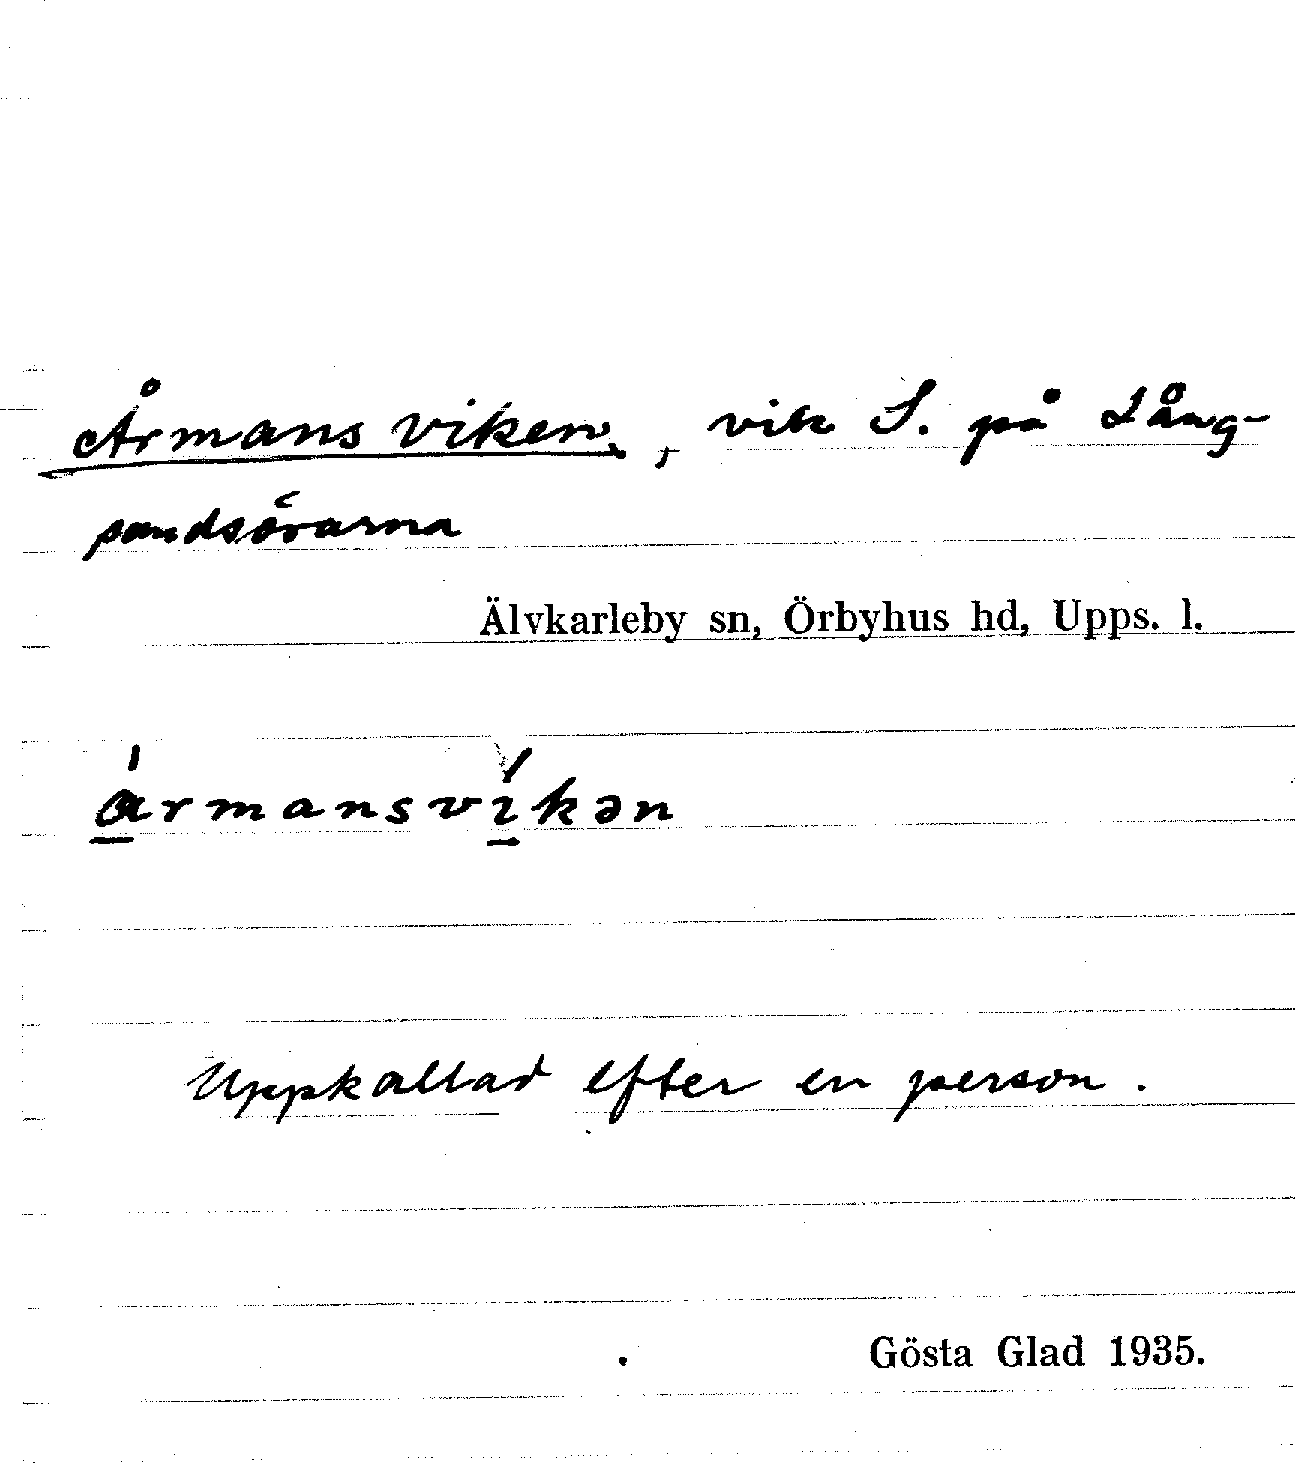 Årmansviken, vik S. på Lång-
sandsörarna
Älvkarleby sn, Örbyhus hd, Upps. l.
ármansvíkən
Uppkallad efter en person.
Gösta Glad 1935.